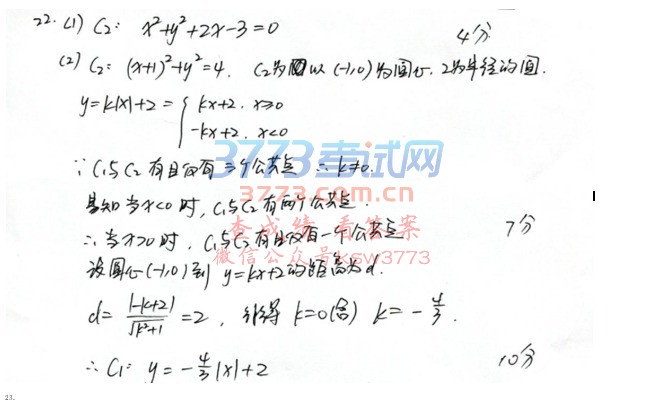 22. (1) C₂: x²+y²+2x-3=0 4分
(2) C₂: (x+1)²+y²=4. C₂为以(-1,0)为圆心.2为半径的圆.
y=k|x|+2={kx+2. x≥0
-kx+2. x<0
∵C₁与C₂有且仅有三个公共点 ∴k≠0.
3773考试网
www.3773.com.cn
易知当x<0时,C₁与C₂有两个公共点.
查成绩 看答案
∴当x>0时,C₁与C₂有且仅有一个公共点 7分
微信公众号ksw3773
设圆心(-1,0)到y=kx+2的距离为d.
d=|-k+2|/√k²+1=2, 解得 k=0(舍) k=-4/3.
∴C₁: y=-4/3|x|+2 10分
23.